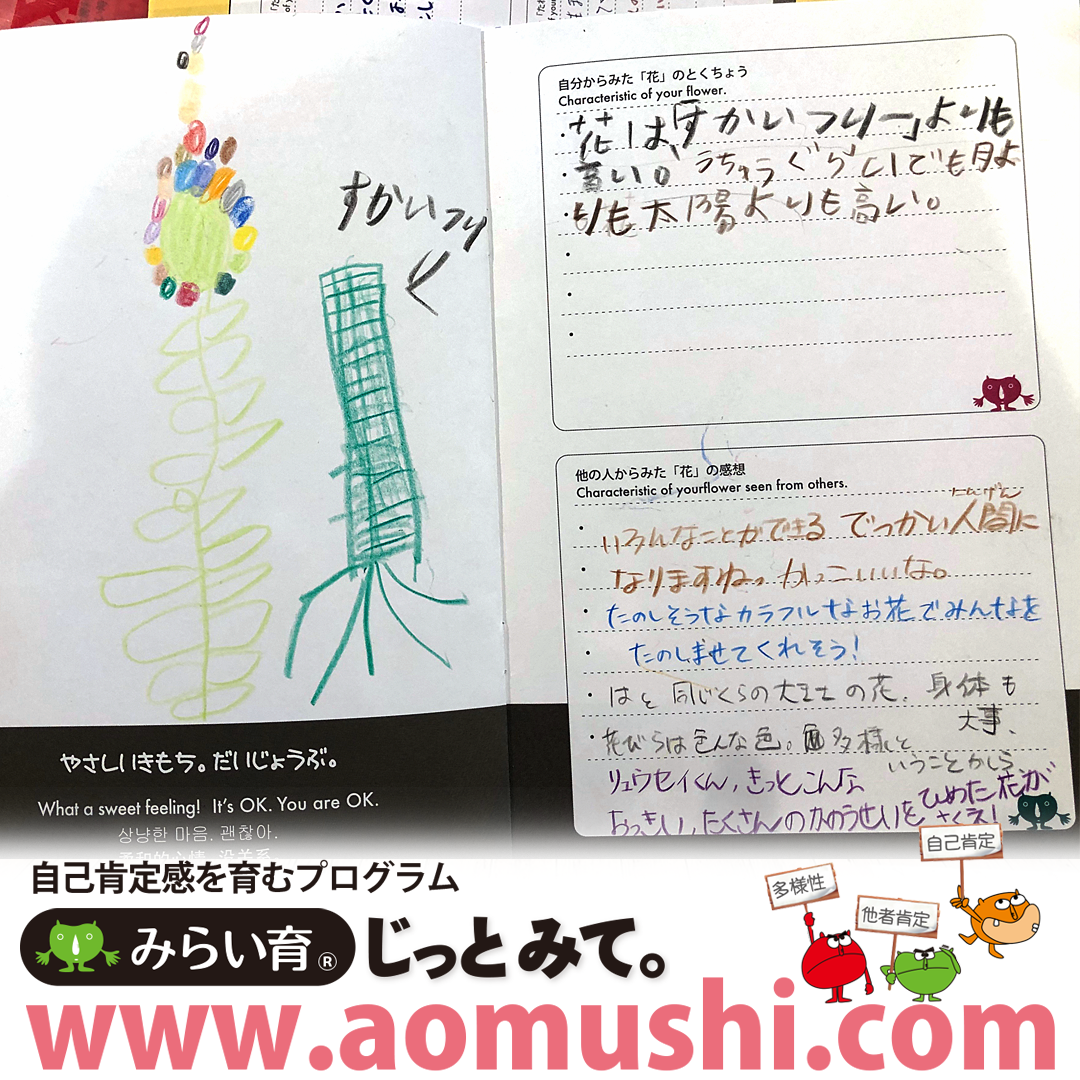 すかいつりー
自分からみた「花」のとくちょう
Characteristic of your flower.
花は、「すかいつりー」よりも
高い。うちゅうぐらいでも月よ
りも太陽よりも高い。
他の人からみた「花」の感想
Characteristic of yourflower seen from others.
にんげん
いろんなことができる でっかい人間に
なりますねっ かっこいいな。
たのしそうなカラフルなお花でみんなを
たのしませてくれそう!
はと同じくらの大きさの花。身体も
大事、
花びらは色んな色。多様と
いうことかしら
リュウセイくん、きっとこんな
おっきい、たくさんのかのうせいを ひめた花が
さくえ!
やさしいきもち。だいじょうぶ。
What a sweet feeling! It's OK. You are OK.
상냥한 마음. 괜찮아.
自己肯定感を育むプログラム
みらい育® じっとみて。
多様性
他者肯定
自己肯定
www.aomushi.com